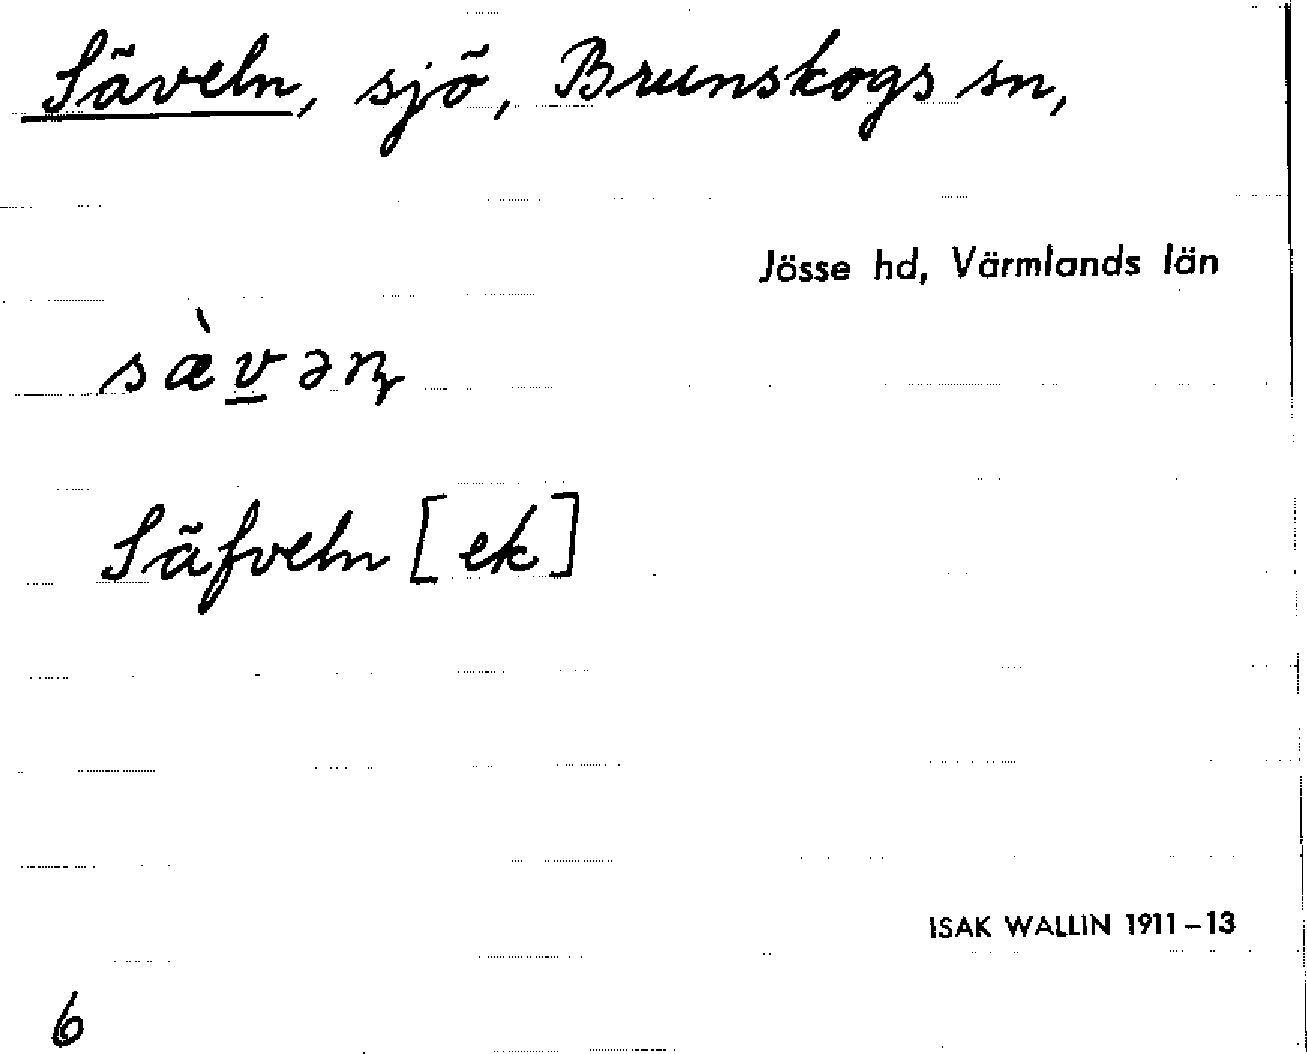 Säveln, sjö, Brunskogs sn,
Jösse hd, Värmlands län
sæ̀v̲əɳ
Säfveln [ek]
ISAK WALLIN 1911–13
6